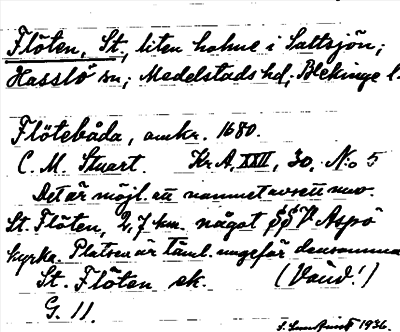 Flöten, St., liten holme i Saltsjön;
Hasslö sn; Medelstads hd; Blekinge l.
Flötebåda, omkr. 1680.
C. M. Stuart. Kr.A. XXII, 30, N:o 5
Det är möjl. att namnet avsett nuv.
St. Flöten, 2,7 km. något SSV Aspö
kyrka. Platsen är täml. ungefär densamma
St. Flöten ek. (Vånd!)
G. 11.
1936.